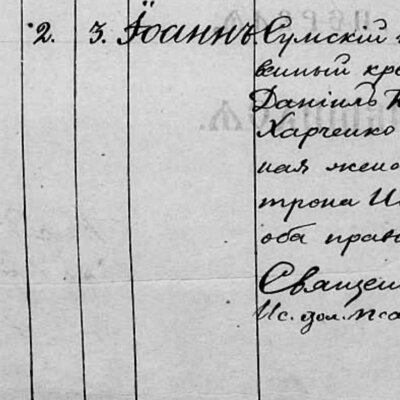 2. 3. Іоаннъ Сумскій
венный кре
Даніилъ К
Харченко
ная жена
трона И
оба прав
Священ
Ис. дол. пса